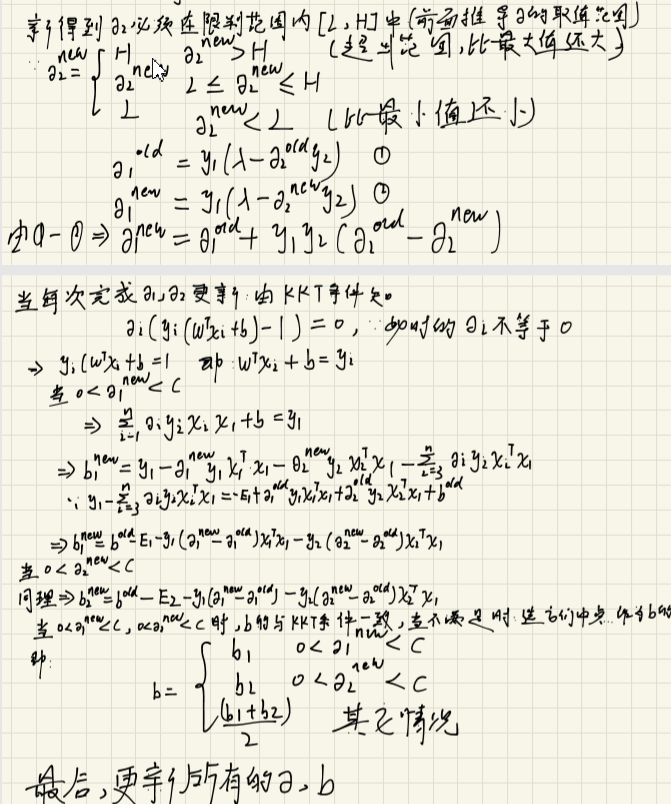 新得到 ∂₂必须在限制范围内 [L, H]中 (前面推导∂的取值范围)
∵ ∂₂ⁿᵉʷ = { H ∂₂ⁿᵉʷ > H (超出范围,比最大值还大)
∂₂ⁿᵉʷ L ≤ ∂₂ⁿᵉʷ ≤ H
L ∂₂ⁿᵉʷ < L (比最小值还小)
∂₁ᵒˡᵈ = y₁(λ-∂₂ᵒˡᵈy₂) ①
∂₁ⁿᵉʷ = y₁(λ-∂₂ⁿᵉʷy₂) ②
⇒ ∂₁ⁿᵉʷ = ∂₁ᵒˡᵈ + y₁y₂(∂₂ᵒˡᵈ - ∂₂ⁿᵉʷ)
当每次完成∂₁,∂₂更新:由KKT条件知。
∂i(yi(wᵀxi+b)-1) = 0, ∵ 此时的∂i不等于0
⇒ yi(wᵀxi+b=1 即:wᵀxi+b=yi
当 0<∂₁ⁿᵉʷ<C
⇒ Σⁿᵢ₌₁ ∂iyixi x₁+b=y₁
⇒ b₁ⁿᵉʷ = y₁-∂₁ⁿᵉʷy₁x₁ᵀx₁-∂₂ⁿᵉʷy₂x₂ᵀx₁-Σⁿᵢ₌₃ ∂iyixiᵀx₁
∵ y₁-Σⁿᵢ₌₃ ∂iyixiᵀx₁=-E₁+∂₁ᵒˡᵈy₁x₁ᵀx₁+∂₂ᵒˡᵈy₂x₂ᵀx₁+bᵒˡᵈ
⇒ b₁ⁿᵉʷ=bᵒˡᵈ-E₁-y₁(∂₁ⁿᵉʷ-∂₁ᵒˡᵈ)x₁ᵀx₁-y₂(∂₂ⁿᵉʷ-∂₂ᵒˡᵈ)x₂ᵀx₁
当 0<∂₂ⁿᵉʷ<C
同理⇒b₂ⁿᵉʷ=bᵒˡᵈ-E₂-y₁(∂₁ⁿᵉʷ-∂₁ᵒˡᵈ)-y₂(∂₂ⁿᵉʷ-∂₂ᵒˡᵈ)x₂ᵀx₁
当 0<∂₁ⁿᵉʷ<C, 0<∂₂ⁿᵉʷ<C 时,b的与KKT条件一致,当不满足时:选它们中点作为b的
即:
b = { b₁ 0<∂₁ⁿᵉʷ<C
b₂ 0<∂₂ⁿᵉʷ<C
(b₁+b₂)/2 其它情况
最后,更新所有的∂,b